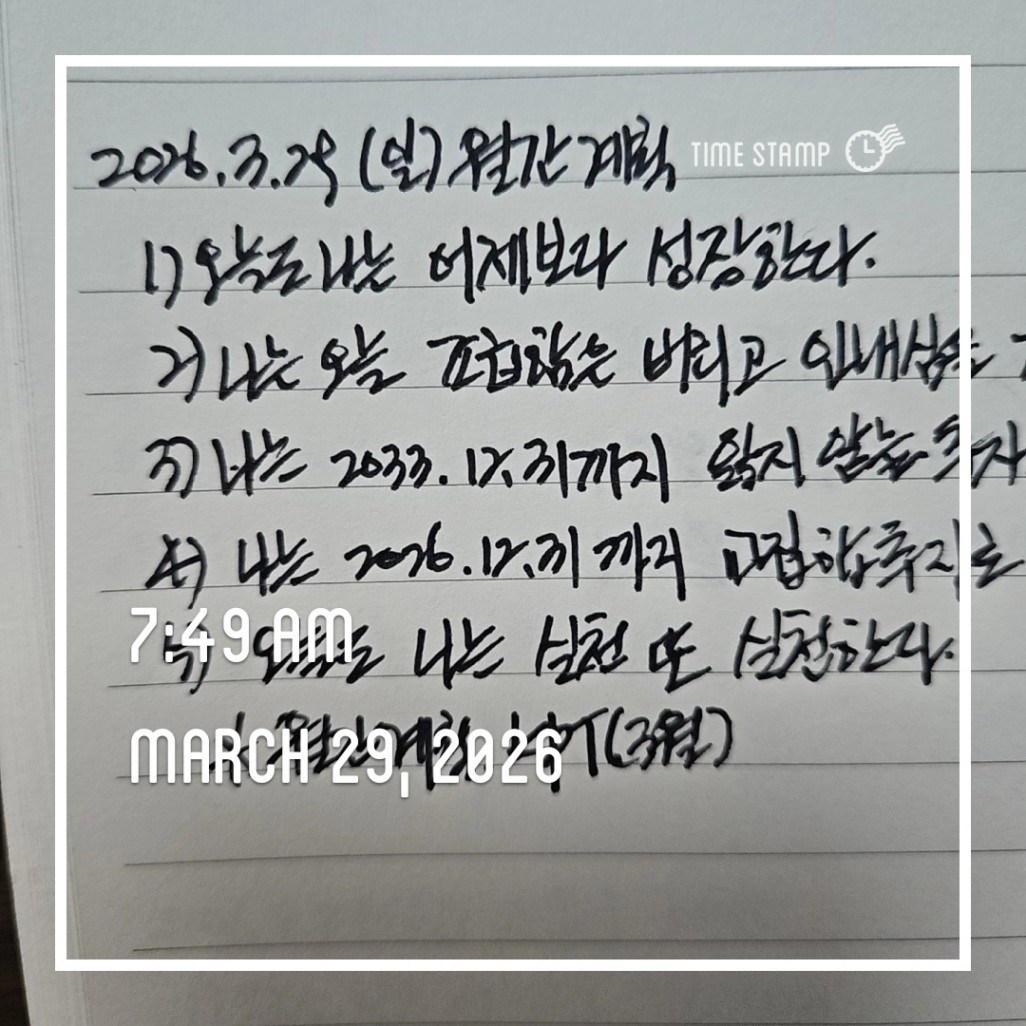 2026.3.29 (일) 월간계획
TIME STAMP
1) 오늘도 나는 어제보다 성장한다.
2) 나는 오늘 조급함을 버리고 인내심을
3) 나는 2033.12.31까지 않는
4) 나는 2026.12.31까지
7:49 AM
5) 오늘도 나는 실천 또 실천한다.
월간계획 (3월)
MARCH 29, 2026